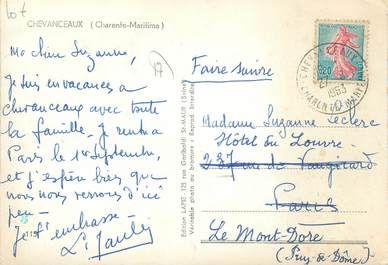 Lot
CHEVANCEAUX (Charente-Maritime)
Ma chère Suzanne,
Je suis en vacances a
chevanceaux avec toute
la famille. Je rentre a
Paris le 1er Septembre,
et j'espère bien que
nous nous verrons d'ici
peu -
Je t'embrasse -
17
Edition LAPIE - 125 rue Garibaldi St-MAUR (Seine)
Véritable photo au bromure - Reprod. Interdite
Faire suivre
CHEVANCEAUX
1963
CHARENTE MARITIME
0,20
Madame Suzanne Leclerc
Hôtel du Louvre
237 rue de Vaugirard
Paris
Le Mont-Dore
(Puy-de-Dôme)